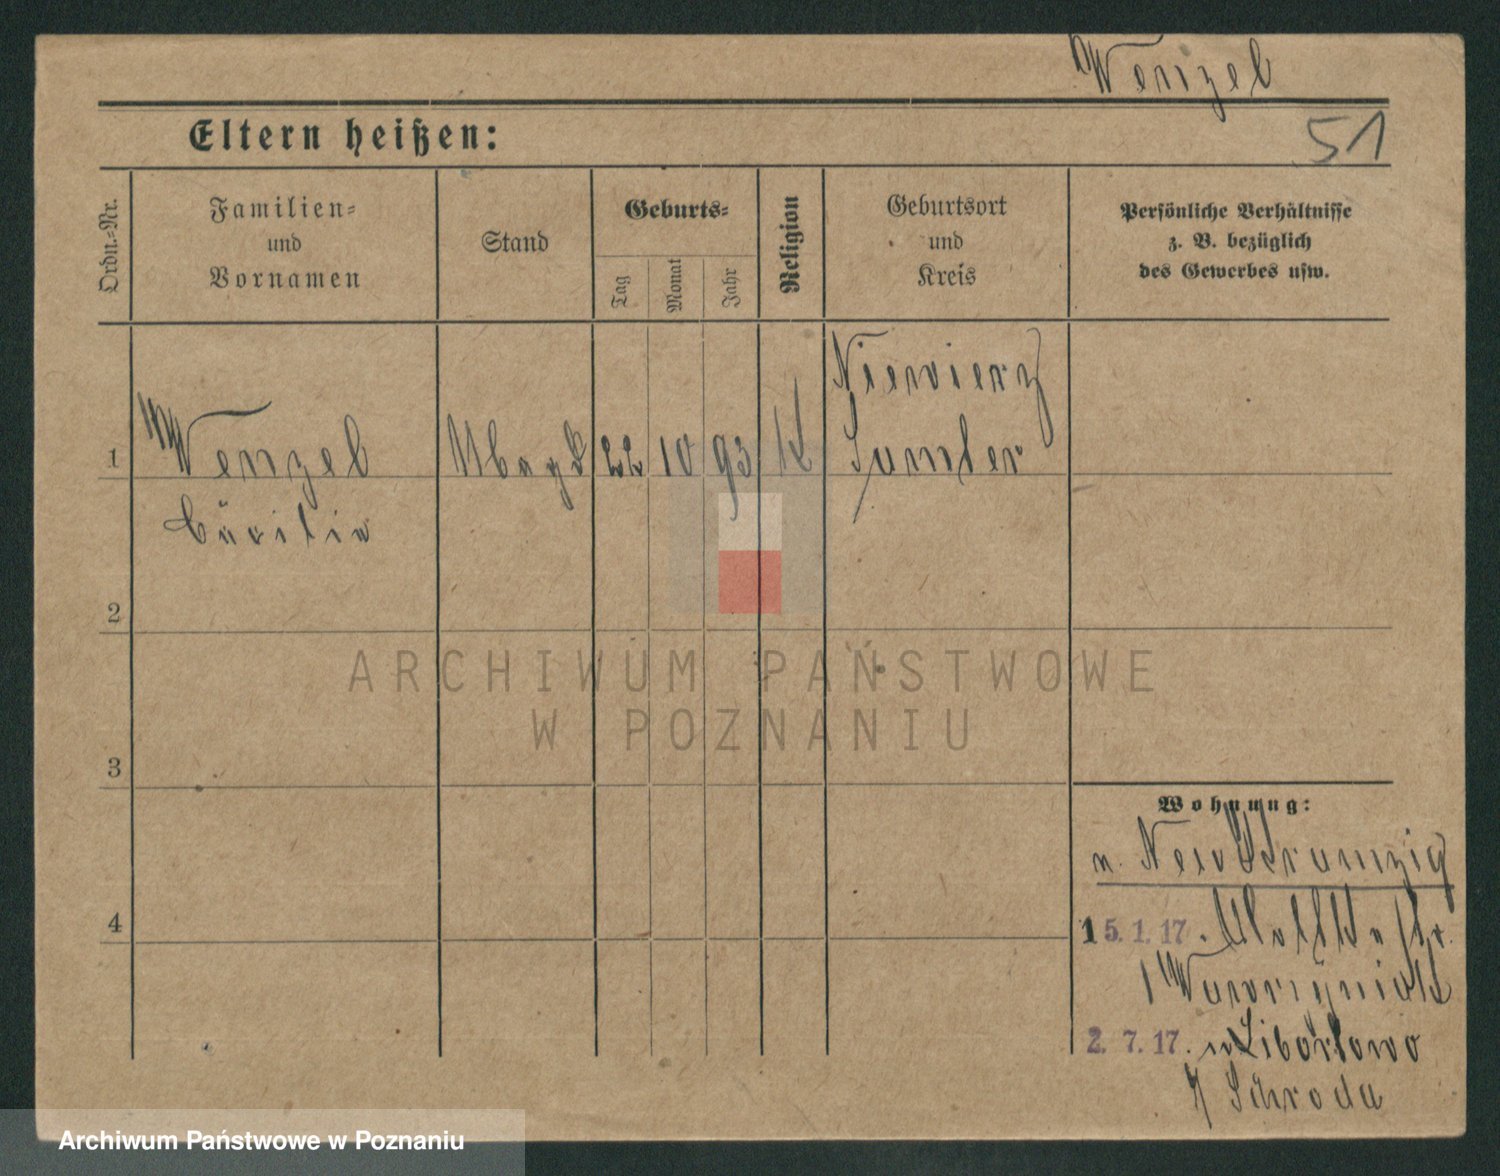 Wenzel
Eltern heißen:
51
Ordn.-Nr.
Familien-
und
Vornamen
Stand
Geburts-
Tag
Monat
Jahr
Religion
Geburtsort
und
Kreis
Persönliche Verhältnisse
z. B. bezüglich
des Gewerbes usw.
1
Wenzel
Cäcilia
Magd
22
10
93
K
Niewierz
Samter
2
3
4
Wohnung:
n. Neu Kramzig
15. 1. 17.
Wawrzyniak
2. 7. 17. n Libartowo
Schroda
ARCHIWUM PAŃSTWOWE
W POZNANIU
Archiwum Państwowe w Poznaniu